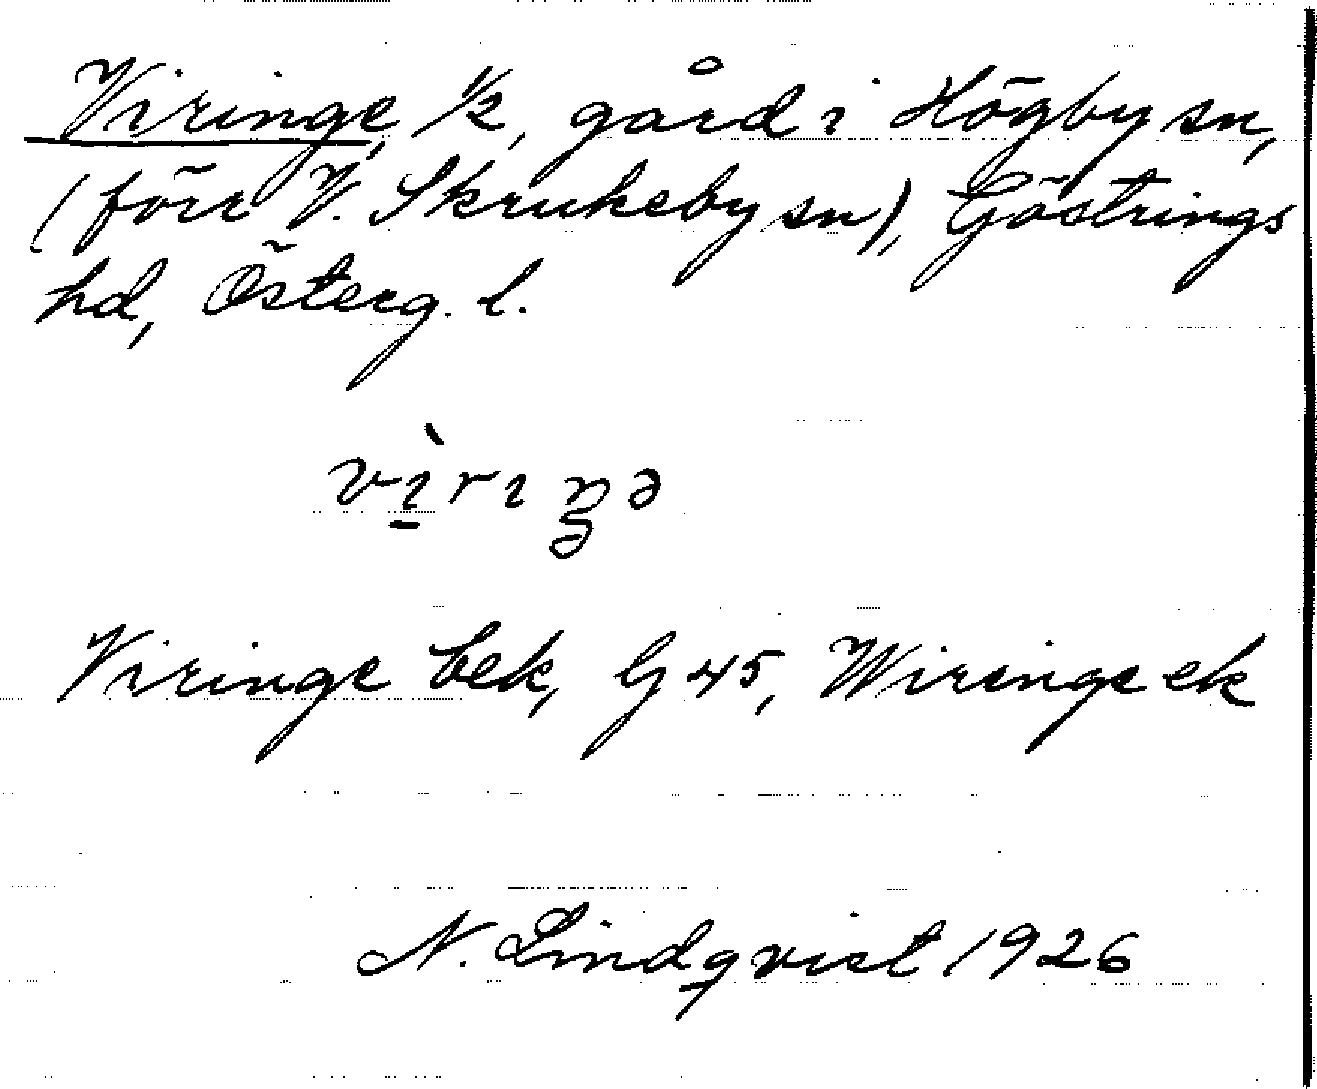 Viringe, 1/2, gård i Högby sn,
(förr V. Skrukeby sn), Göstrings
hd, Österg. l.
vìrıŋə
Viringe bek, G 45, Wiringe ek
N. Lindqvist 1926